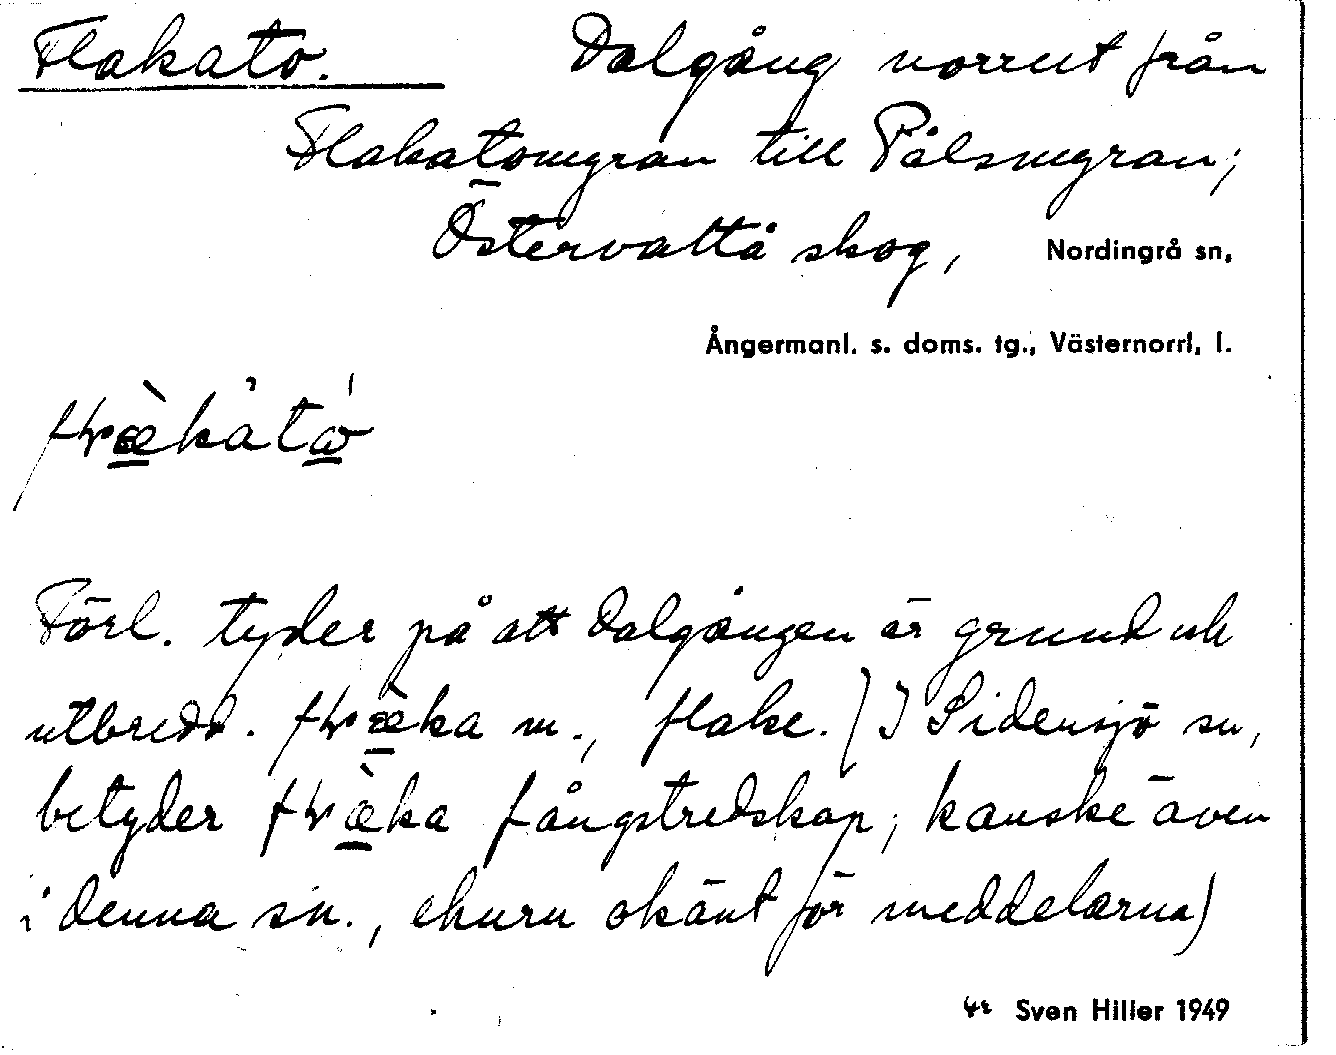 Flakato. Dalgång norrut från
Flakatomyran till Pålsmyran;
Östervattå skog, Nordingrå sn,
Ångermanl. s. doms. tg., Västernorrl. l.
Förl. tyder på att dalgången är grund och
utbredd. m., flake. (I Sidensjö sn,
betyder fångstredskap, kanske även
i denna sn., ehuru okänt för meddelarna)
Sven Hiller 1949